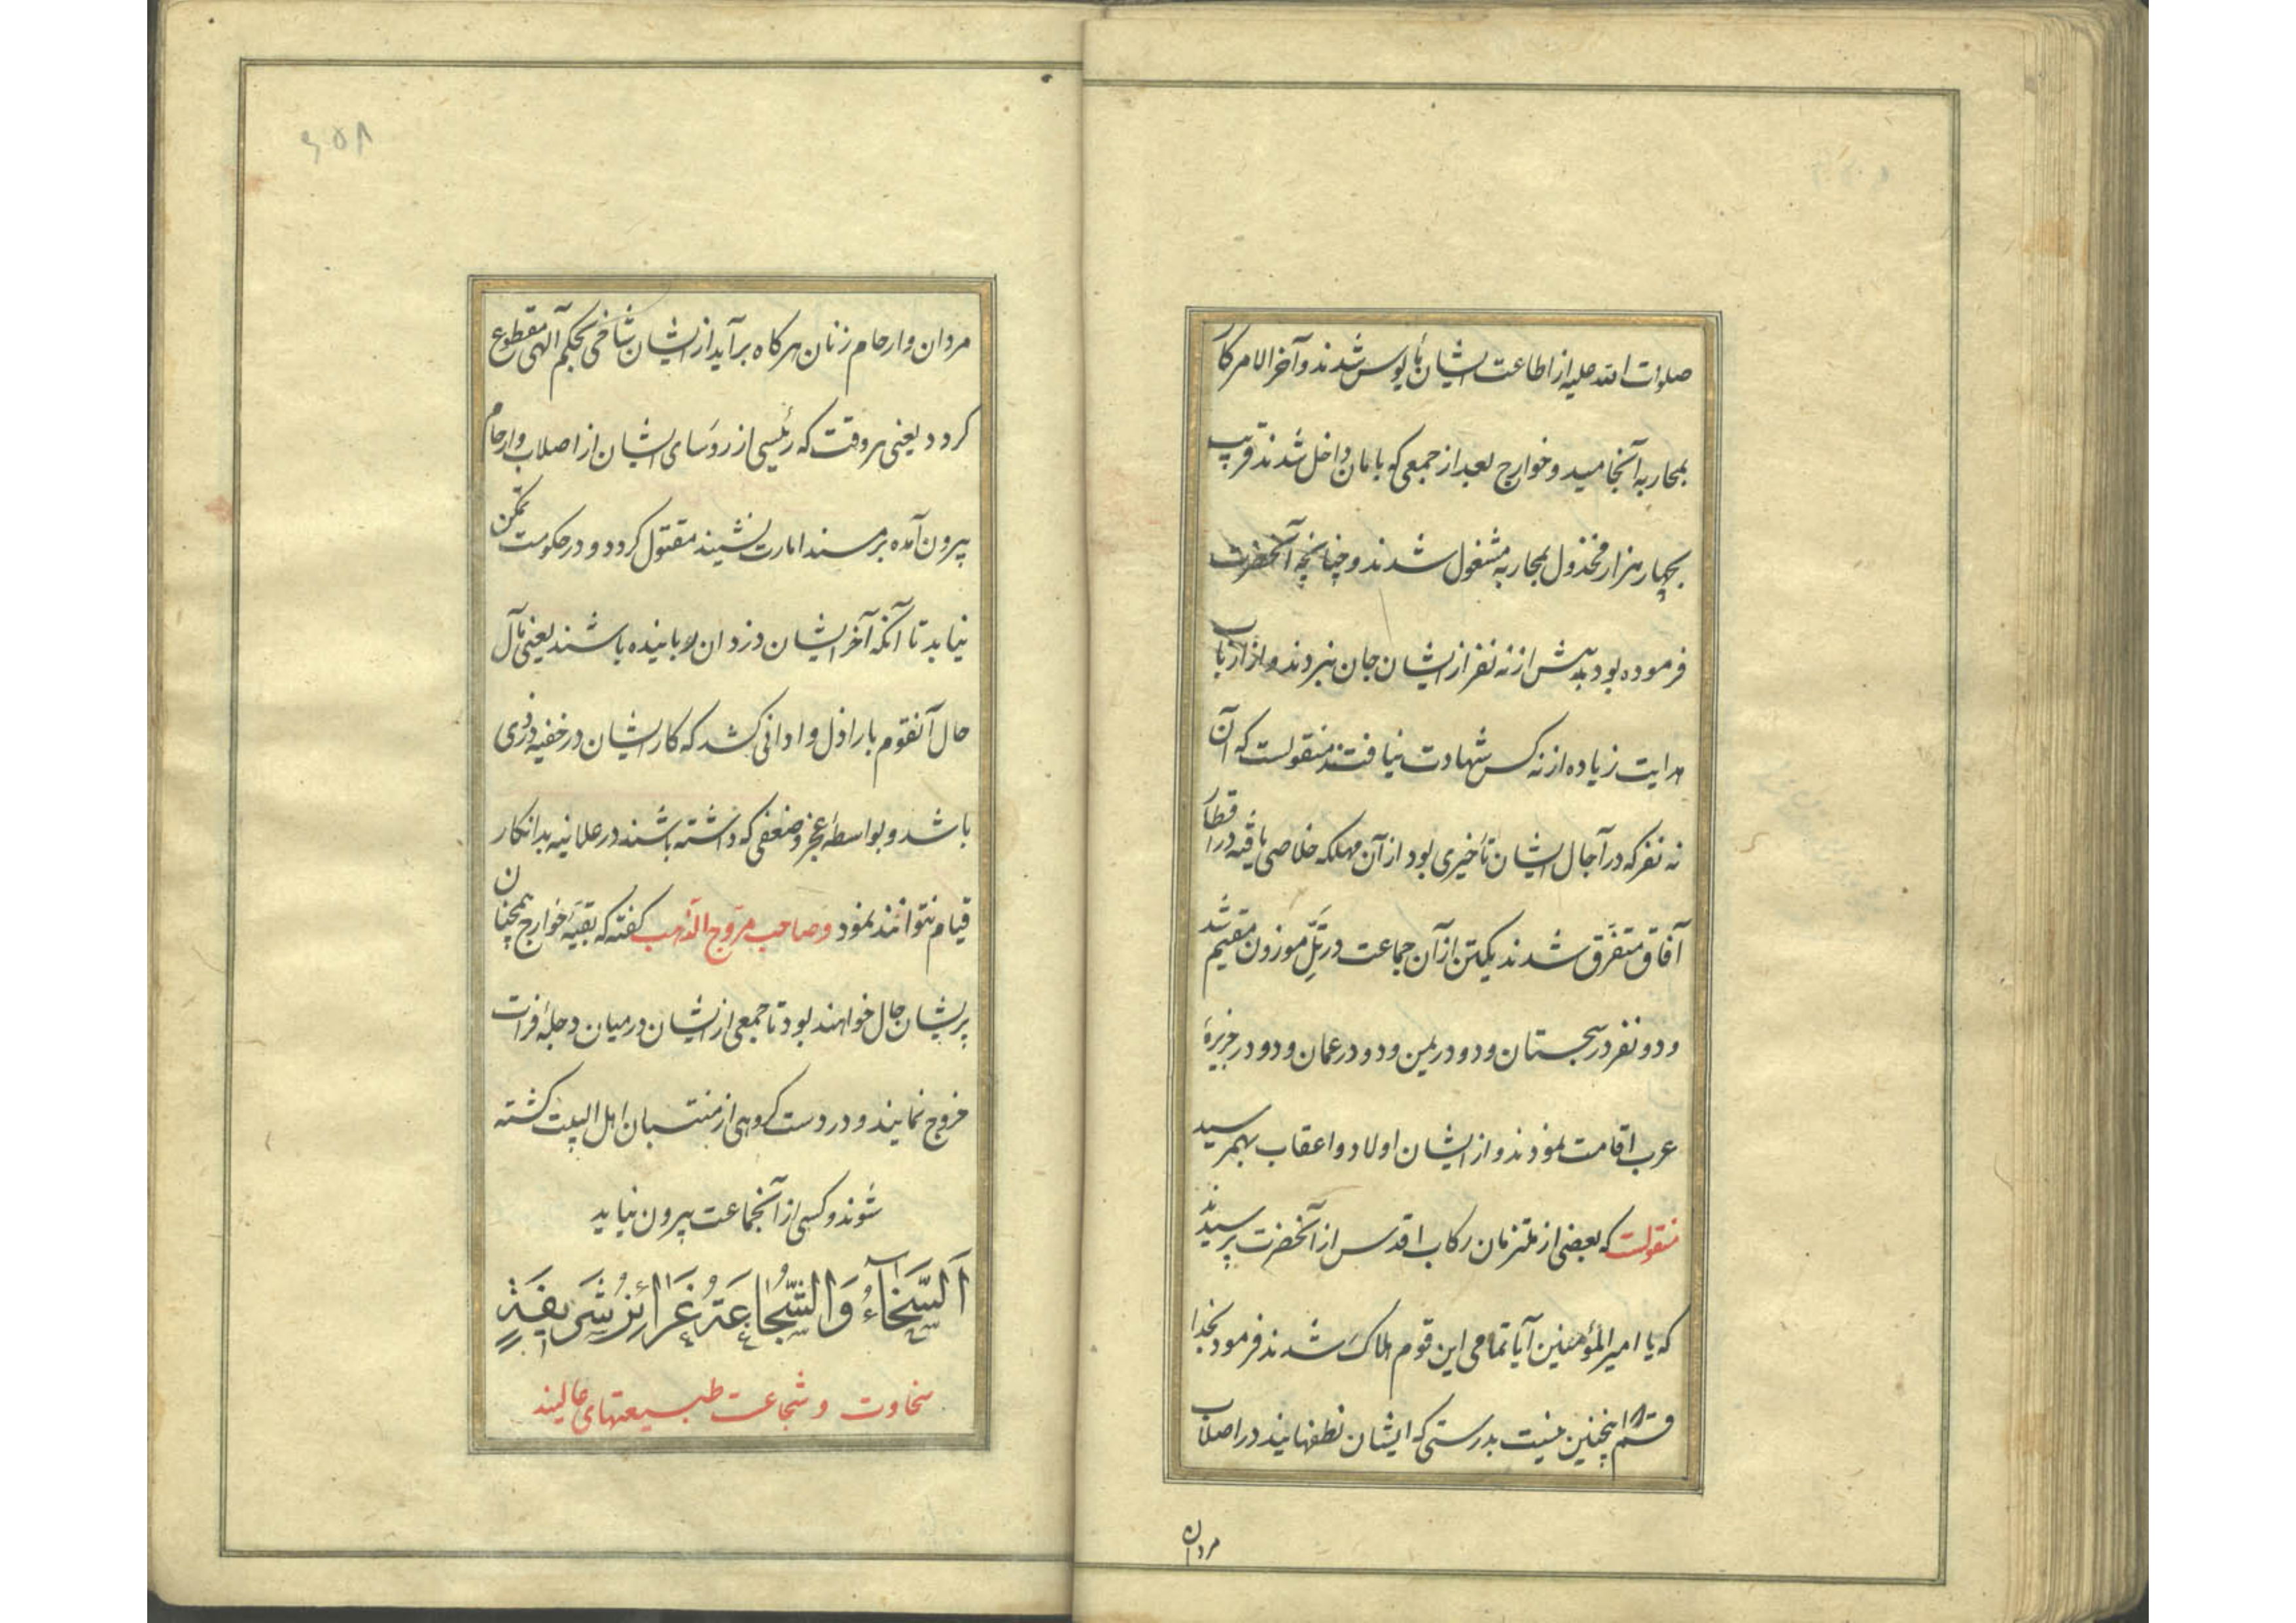 صلوات الله علیه از اطاعت ایشان مأیوس شدند و آخر الامر کار
بمحاربه انجامید و خوارج بعد از جمعی که بامان داخل شدند قریب
بچهار هزار مخذول بمحاربه مشغول شدند و چنانچه آنحضرت
فرموده بود بیش از نه نفر از ایشان جان نبردند و از ارباب
هدایت زیاده از نه کس شهادت نیافتند منقولست که آن
نه نفر که در آجال ایشان تأخیری بود از آن مهلکه خلاصی یافته در اقطار
آفاق متفرّق شدند یکتن از آن جماعت در تلّ موزون مقیم شد
و دو نفر در سجستان و دو در یمن و دو در عمان و دو در جزیرهٔ
عرب اقامت نمودند و از ایشان اولاد و اعقاب بهمرسید
منقولست که بعضی از ملتزمان رکاب اقدس از آنحضرت پرسیدند
که یا امیر المؤمنین آیا تمامی این قوم هلاک شدند فرمود بخدا
قسم اینچنین نیست بدرستی که ایشان نطفهایند در اصلاب
مردان
۶۵۸
مردان و ارحام زنان هرکاه برآید از ایشان شاخی بحکم آلهی مقطوع
کردد یعنی هر وقت که رئیسی از رؤسای ایشان از اصلاب و ارحام
بیرون آمده بر مسند امارت نشیند مقتول کردد و در حکومت تمکن
نیابد تا آنکه آخر ایشان دزدان رباینده باشند یعنی مآل
حال آنقوم باراذل و ادانی کشد که کار ایشان در خفیه دزدی
باشد و بواسطهٔ عجز و ضعفی که داشته باشند در علانیه بدانکار
قیام نتوانند نمود و صاحب مروّج الذّهب کفته که بقیّهٔ خوارج همچنان
پریشان حال خواهند بود تا جمعی از ایشان در میان دجلهٔ فرات
خروج نمایند و در دست کروهی از منتسبان اهل البیت کشته
شوند و کسی از آنجماعت بیرون نیاید
اَلسَّخَآءُ وَالشَّجَاعَةُ غَرَائِزُ شَرِيفَةٍ
سخاوت و شجاعت طبیعتهای عالیند